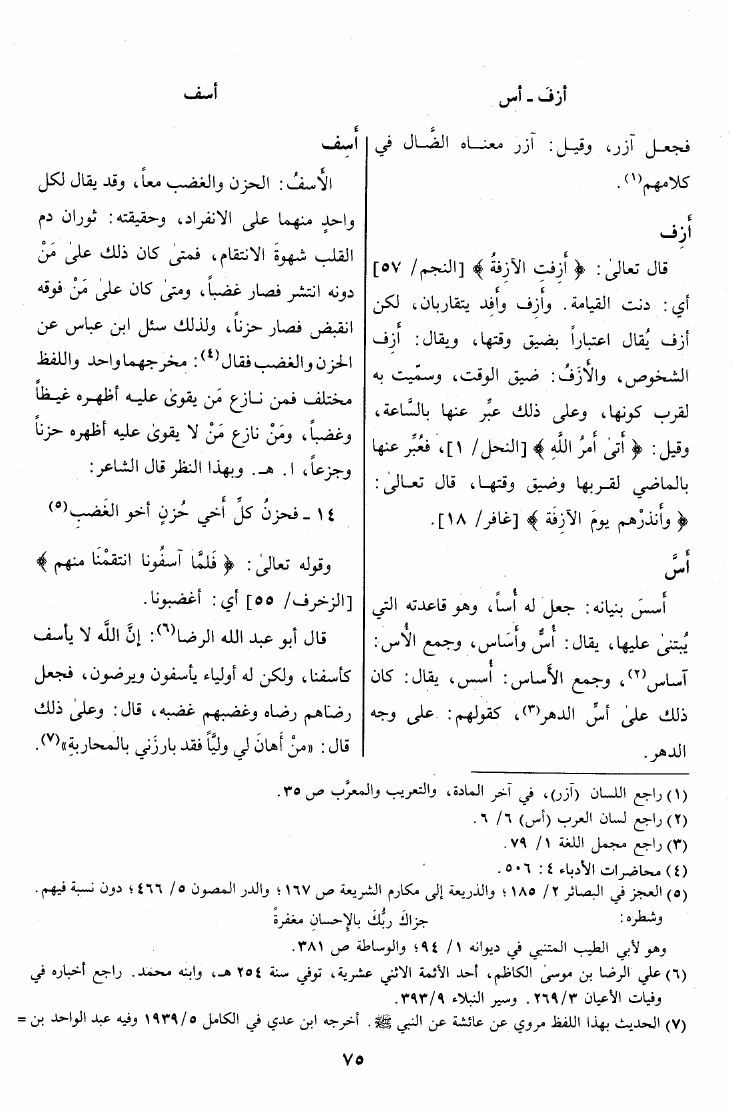 أزفَ ـ أس
أسف
فجعل آزر، وقيل: آزر معناه الضَّال في
كلامهم(١).
أَزِف
قال تعالىٰ: ﴿ أَزِفتِ الآزِفةُ ﴾ [النجم/ ٥٧]
أي: دنت القيامة. وأَزِف وأَفِد يتقاربان، لكن
أزف يُقال اعتباراً بضيق وقتها، ويقال: أَزِف
الشخوص، والأَزَفُ: ضيق الوقت، وسمّيت به
لقرب كونها، وعلى ذلك عبِّر عنها بالسَّاعة،
وقيل: ﴿ أَتىٰ أَمرُ اللَّهِ ﴾ [النحل/ ١]، فعُبِّر عنها
بالماضي لقربها وضيق وقتها، قال تعالىٰ:
﴿ وأَنذرْهم يومَ الآزِفَة ﴾ [غافر/ ١٨].
أَسَّ
أسسَ بنيانه: جعل له أُساً، وهو قاعدته التي
يُبتنىٰ عليها، يقال: أُسٌّ وأَسَاس، وجمع الأُس:
آساس(٢)، وجمع الأَساس: أُسس، يقال: كان
ذلك علىٰ أسِّ الدهر(٣)، كقولهم: علىٰ وجه
الدهر.
أَسِف
الأَسفُ: الحزن والغضب معاً، وقد يقال لكل
واحدٍ منهما على الانفراد، وحقيقته: ثوران دم
القلب شهوةَ الانتقام، فمتىٰ كان ذلك علىٰ مَنْ
دونه انتشر فصار غضباً، ومتىٰ كان علىٰ مَنْ فوقه
انقبض فصار حزناً، ولذلك سئل ابن عباس عن
الحزن والغضب فقال(٤): مخرجهما واحد واللفظ
مختلف فمن نازع مَن يقوىٰ عليه أظهره غيظاً
وغضباً، ومَنْ نازع مَنْ لا يقوىٰ عليه أظهره حزناً
وجزعاً، ا. هـ. وبهذا النظر قال الشاعر:
١٤ ـ فحزنُ كلِّ أَخي حُزنٍ أَخو الغَضبِ(٥)
وقوله تعالىٰ: ﴿ فَلَمَّا آسفُونا انتقمْنَا منهم ﴾
[الزخرف/ ٥٥] أي: أغضبونا.
قال أبو عبد الله الرضا(٦): إنَّ اللَّه لا يأسف
كأسفنا، ولكن له أولياء يأسفون ويرضون، فجعل
رضاهم رضاه وغضبهم غضبه، قال: وعلىٰ ذلك
قال: «منْ أهانَ لي وليَّاً فقد بارزَني بالمحاربةِ»(٧).
(١) راجع اللسان (آزر)، في آخر المادة، والتعريب والمعرَّب ص ٣٥.
(٢) راجع لسان العرب (أس) ٦/ ٦.
(٣) راجع مجمل اللغة ١/ ٧٩.
(٤) محاضرات الأدباء ٤: ٥٠٦.
(٥) العجز في البصائر ٢/ ١٨٥؛ والذريعة إلى مكارم الشريعة ص ١٦٧؛ والدر المصون ٥/ ٤٦٦؛ دون نسبة فيهم.
وشطره: جزاكَ ربُّكَ بالإِحسانِ مغفرةً
وهو لأبي الطيب المتنبي في ديوانه ١/ ٩٤؛ والوساطة ص ٣٨١.
(٦) علي الرضا بن موسىٰ الكاظم، أحد الأئمة الاثني عشرية، توفي سنة ٢٥٤ هـ، وابنه محمد. راجع أخباره في
وفيات الأعيان ٢٦٩/٣. وسير النبلاء ٣٩٣/٩.
(٧) الحديث بهذا اللفظ مروي عن عائشة عن النبي ﷺ. أخرجه ابن عدي في الكامل ١٩٣٩/٥ وفيه عبد الواحد بن =
٧٥